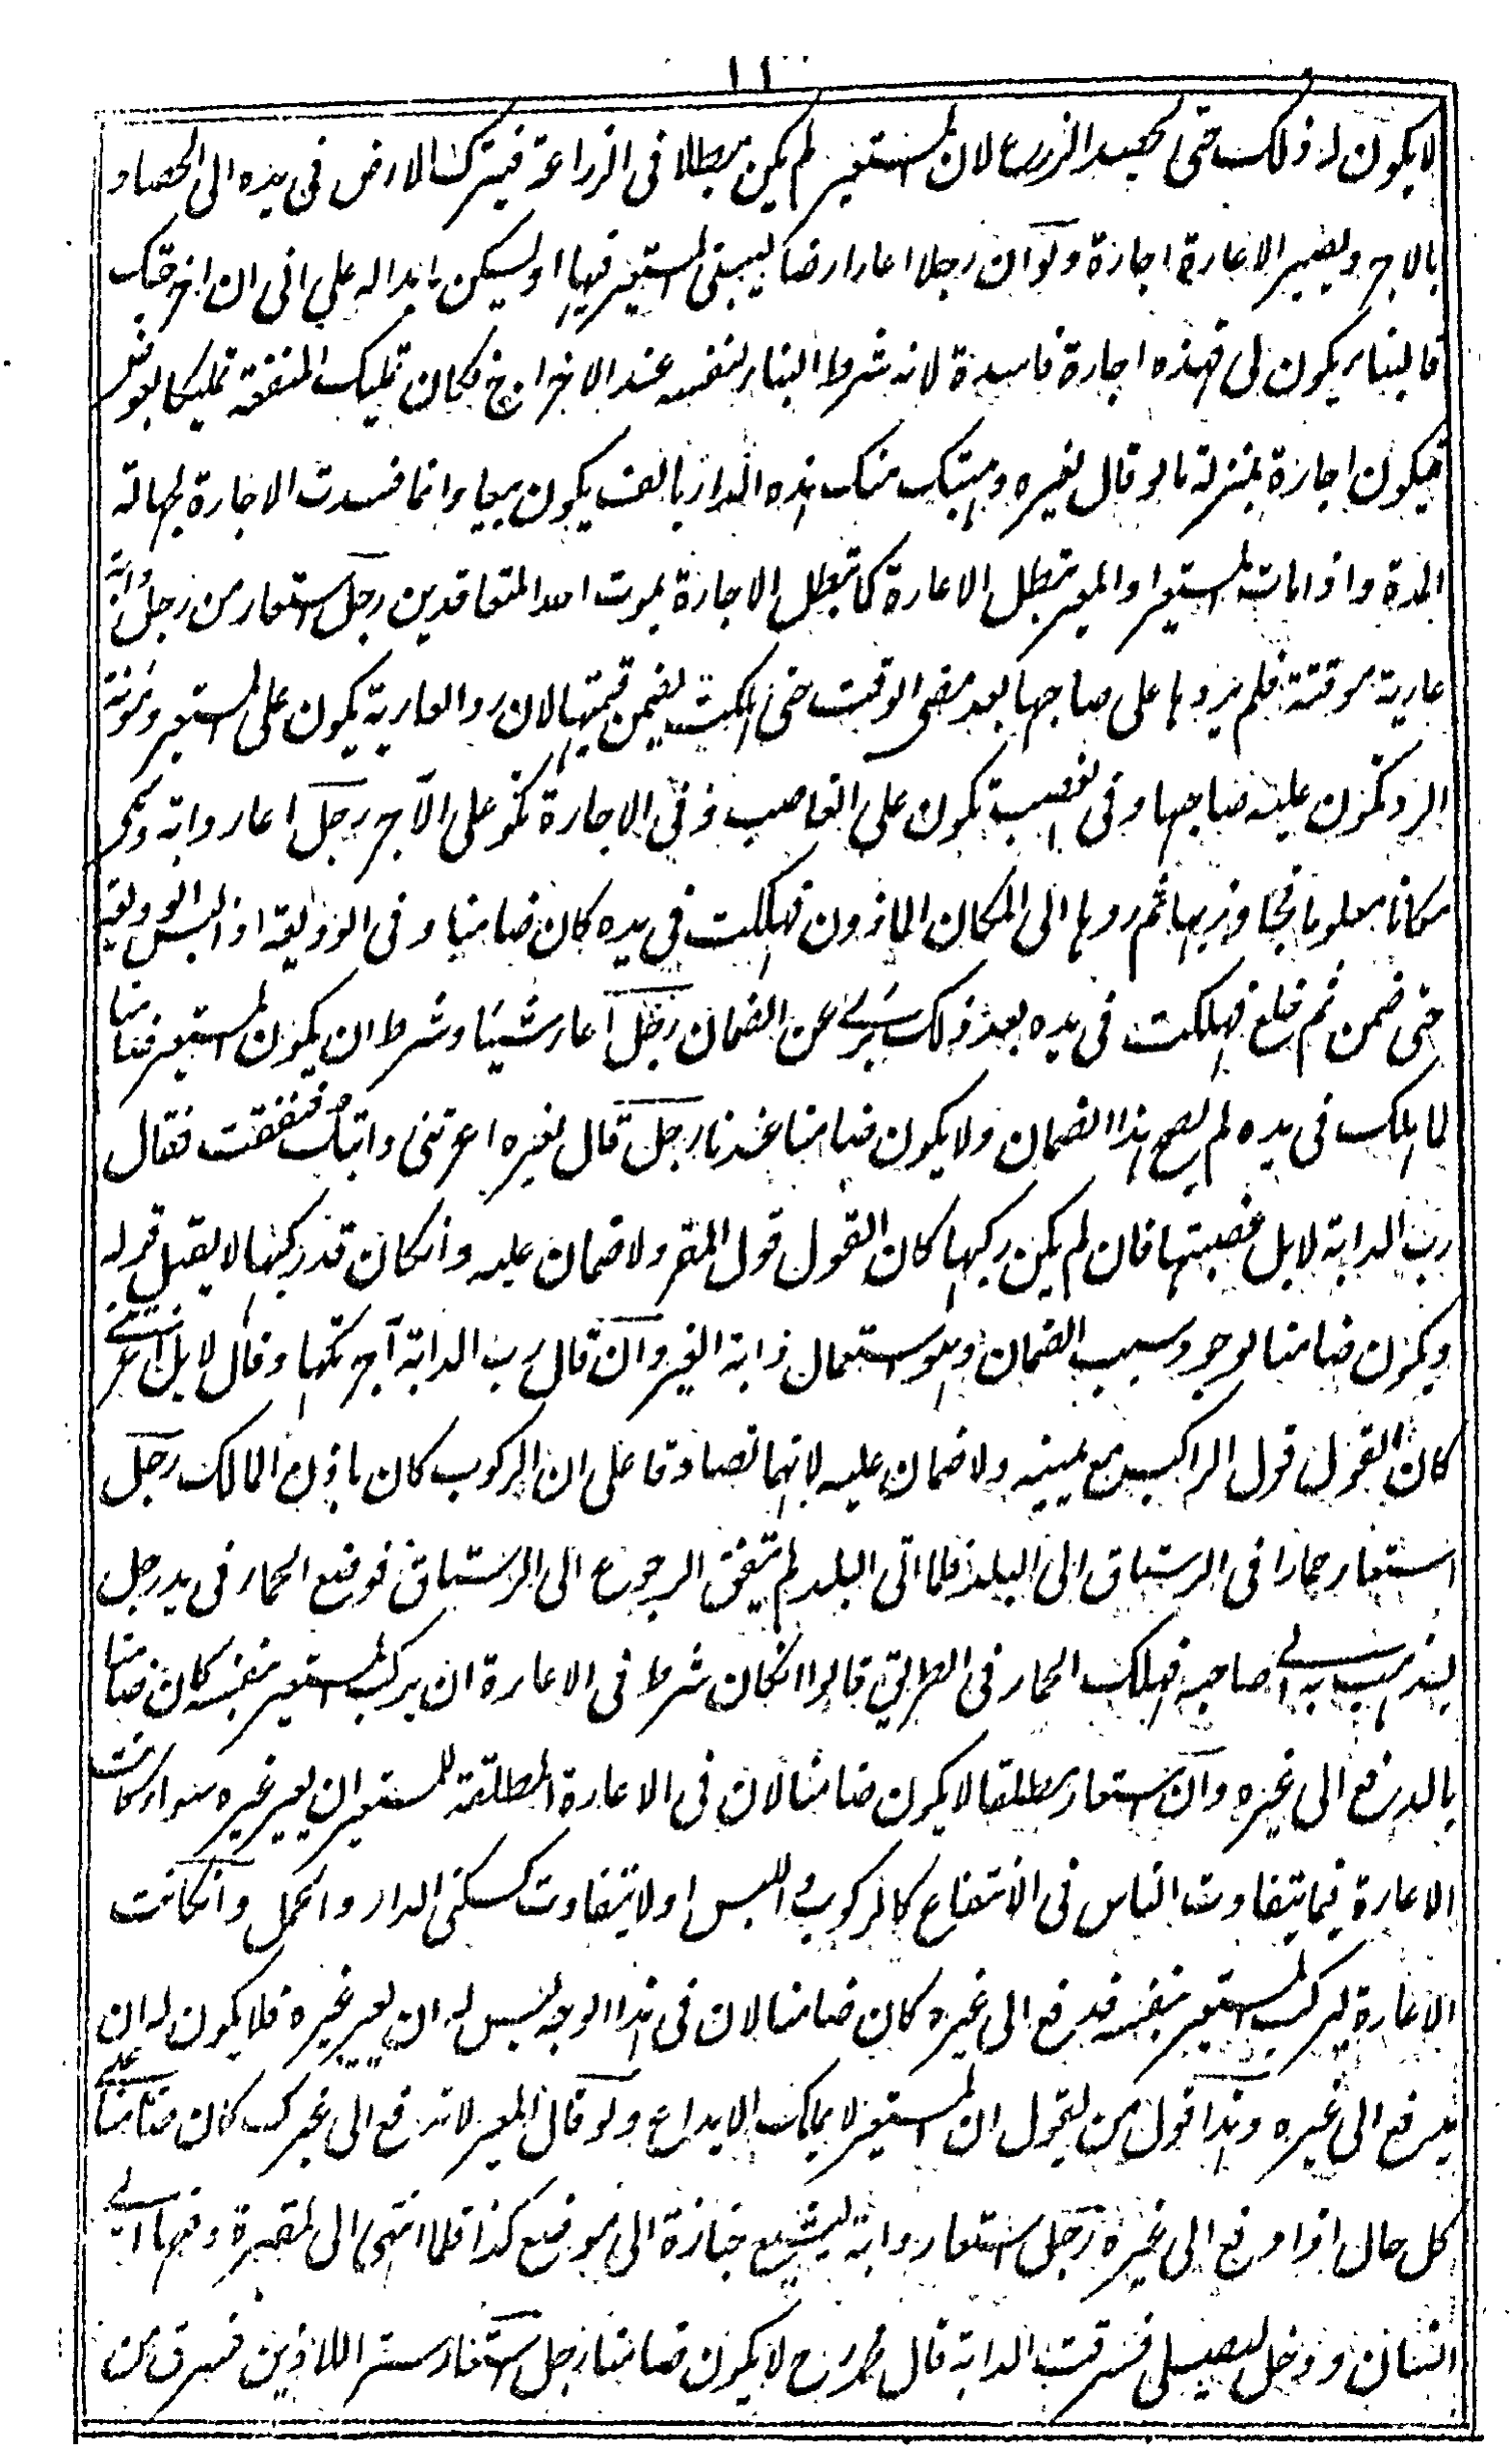 لا يكون له ذلك حتى يحصد الزرع لان المستعير لم يكن مبطلا فى الزراعة فيترك الارض فى يده الى الحصاد
بالاجر ويصير الاعارة اجارة ولو ان رجلا اعار ارضا ليبنى المستعير فيها او ليسكن ما بدا له على انى ان اخرجتك
فالبناء يكون لى فهذه اجارة فاسدة لانه شرط البناء لنفسه عند الاخراج فكان تمليك المنفعة تمليكا بعوض
فيكون اجارة بمنزلة ما لو قال لغيره وهبتك منك هذه الدار بالف يكون بيعا وانما فسدت الاجارة لجهالة
المدة واذا مات المستعير او المعير تبطل الاعارة كما تبطل الاجارة بموت احد المتعاقدين رجل استعار من رجل دابة
عارية موقتة فلم يردها على صاحبها بعد مضى الوقت حتى هلكت يضمن قيمتها لان رد العارية يكون على المستعير ومؤنة
الرد تكون عليه صاحبها وفى الغصب تكون على الغاصب وفى الاجارة تكو على الآجر رجل اعار دابة وذكر
مكانا معلوما فجاوز بها ثم ردها الى المكان الماذون فهلكت فى يده كان ضامنا وفى الوديعة اذا لبس الوديعة
حتى ضمن ثم خلع فهلكت فى يده بعد ذلك برئ عن الضمان رجل اعار شيئا وشرط ان يكون المستعير ضامنا
لما هلك فى يده لم يصح هذا الضمان ولا يكون ضامنا عندنا رجل قال لغيره اعرتنى دابتك فنفقت فقال
رب الدابة لا بل غصبتها فان لم يكن ركبها كان القول قول المقر ولا ضمان عليه وانكان قد ركبها لا يقبل قوله
ويكون ضامنا لوجود سبب الضمان وهو استعمال دابة الغير وان قال رب الدابة آجرتكها وقال لا بل اعرتنى
كان القول قول الراكب مع يمينه ولا ضمان عليه لانهما تصادقا على ان الركوب كان باذن المالك رجل
استعار حمارا فى الرستاق الى البلد فلما اتى البلد لم يتفق الرجوع الى الرستاق فوضع الحمار فى يد رجل
ليذهب به الى صاحبه فهلك الحمار فى الطريق قالوا انكان شرط فى الاعارة ان يركب المستعير بنفسه كان ضامنا
بالدفع الى غيره وان استعار مطلقا لا يكون ضامنا لان فى الاعارة المطلقة للمستعير ان يعير غيره سواء كانت
الاعارة فيما يتفاوت الناس فى الانتفاع كالركوب واللبس او لا يتفاوت كسكنى الدار والحمل وانكانت
الاعارة ليركب المستعير بنفسه فدفع الى غيره كان ضامنا لان فى هذا الوجه ليس له ان يعير غيره فلا يكون له ان
يدفع الى غيره وهذا قول من يقول ان المستعير لا يملك الايداع ولو قال المعير لا تدفع الى غيرك كان ضامنا على
كل حال اذا دفع الى غيره رجل استعار دابة ليشيع جنازة الى موضع كذا فلما انتهى الى المقبرة دفعها الى
انسان ودخل ليصلى فسرقت الدابة قال محمد رح لا يكون ضامنا رجل استعار ستر اللاذين فسرق من